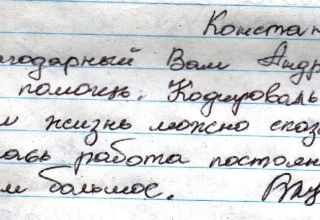 Констан
годарный Вам Андр
помощь. Кодироваль
жизнь можно сказ
ась работа постоян
м большое.